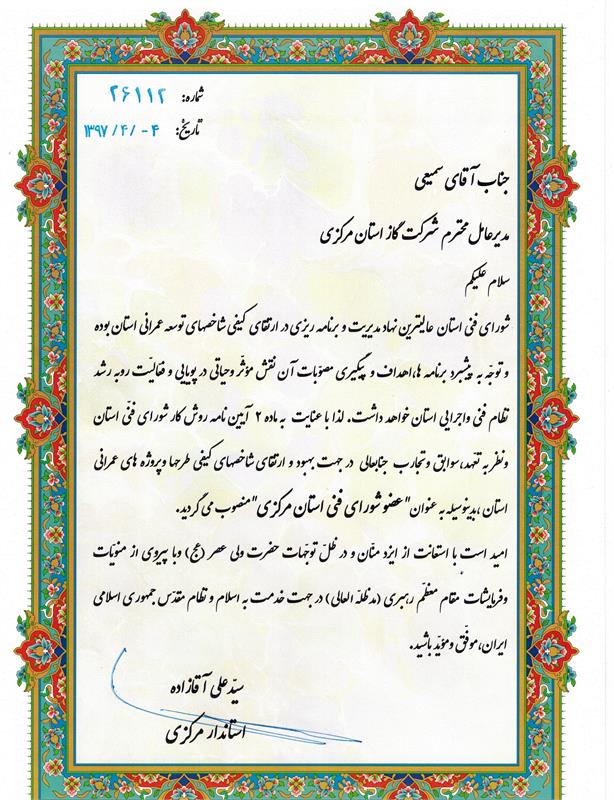 شماره: ۲۶۱۱۲
تاریخ: ۱۳۹۷/۴/۰۴
جناب آقای سمیعی
مدیرعامل محترم شرکت گاز استان مرکزی
سلام علیکم
شورای فنی استان عالیترین نهاد مدیریت و برنامه ریزی در ارتقای کیفی شاخصهای توسعه عمرانی استان بوده
و توجّه به پیشبرد برنامه ها،اهداف و پیگیری مصوّبات آن نقش مؤثّر وحیاتی در پویایی و فعالیّت روبه رشد
نظام فنی واجرایی استان خواهد داشت. لذا با عنایت به ماده ۲ آیین نامه روش کار شورای فنّی استان
ونظر به تعهد،سوابق وتجارب جنابعالی در جهت بهبود و ارتقای شاخصهای کیفی طرحها وپروژه های عمرانی
استان ،بدینوسیله به عنوان "عضو شورای فنی استان مرکزی" منصوب می گردید.
امید است با استعانت از ایزد منّان و در ظلّ توجّهات حضرت ولی عصر (عج) وبا پیروی از منویّات
وفرمایشات مقام معظّم رهبری (مدظلّه العالی) در جهت خدمت به اسلام و نظام مقدّس جمهوری اسلامی
ایران،موفّق ومؤیّد باشید.
سیّدعلی آقازاده
استاندار مرکزی